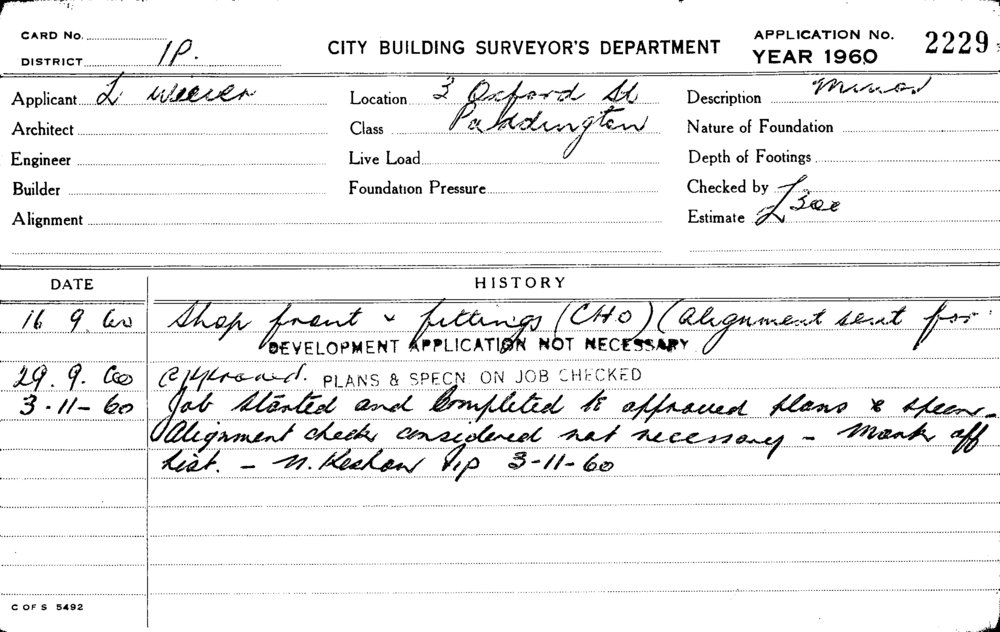 CARD No.
DISTRICT 1P.
CITY BUILDING SURVEYOR'S DEPARTMENT
APPLICATION No. 2229
YEAR 1960
Applicant L
Location 3 Oxford St
Description Minor
Architect
Class Paddington
Nature of Foundation
Engineer
Live Load
Depth of Footings
Builder
Foundation Pressure
Checked by
Alignment
Estimate £300
DATE HISTORY
16 9 60 Shop front & fittings (CHO) (Alignment sent for
DEVELOPMENT APPLICATION NOT NECESSARY
29. 9. 60 Approved. PLANS & SPECN. ON JOB CHECKED
3-11-60 Job started and completed to approved plans & specn-
Alignment check considered not necessary - Mark off
list. - N. 3-11-60
C OF S 5492